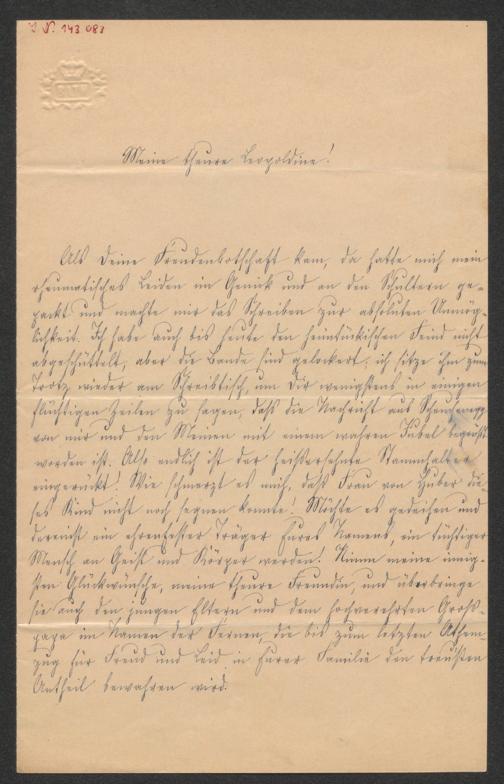 I. N. 143 083
BATH
Meine theure Leopoldine!
Als Deine Freudenbotschaft kam, da hatte mich mein
rheumatisches Leiden im Genick und an den Schultern ge-
packt und machte mir das Schreiben zur absoluten Unmög-
lichkeit. Ich habe auch bis heute den heimtückischen Feind nicht
abgeschüttelt, aber die Bande sind gelockert, ich sitze ihm zum
Trotz wieder am Schreibtisch, um Dir wenigstens in einigen
flüchtigen Zeilen zu sagen, daß die Nachricht aus
von mir und den Meinen mit einem wahren Jubel begrüßt
worden ist. Also endlich ist der heißersehnte Stammhalter
eingerückt! Wie schmerzt es mich, daß Frau von Huber die-
ses Kind nicht noch segnen konnte! Möchte es gedeihen und
dereinst ein ehrenfester Träger Eures Namens, ein tüchtiger
Mensch an Geist und Körper werden! Nimm meine innig-
sten Glückwünsche, meine theure Freundin, und überbringe
sie auch den jungen Eltern und dem hochverehrten Groß-
papa im Namen der Fernen, die bis zum letzten Athem-
zug für Freud und Leid in Eurer Familie den treuesten
Antheil bewahren wird.